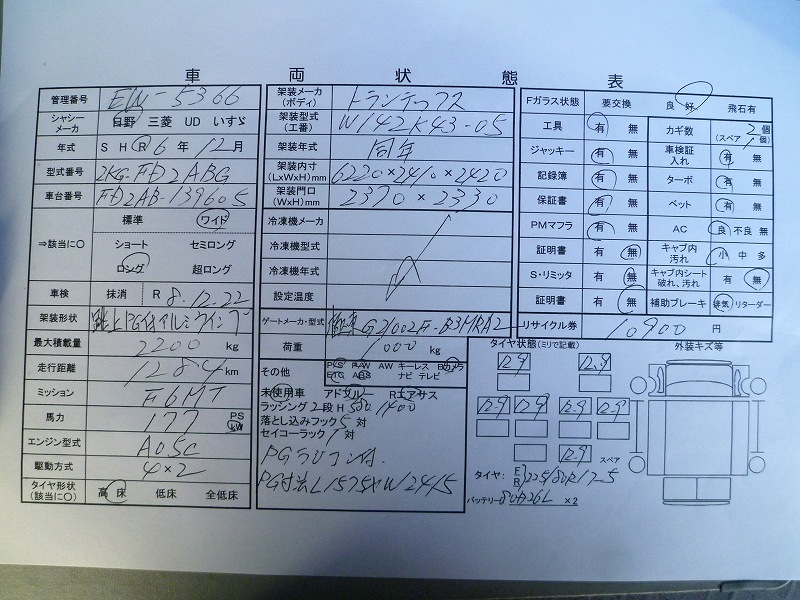 車両状態表
管理番号 EW-5366
シャシーメーカ 日野 三菱 UD いすゞ
年式 S H R 6 年 12 月
型式番号 2KG-FD2ABG
車台番号 FD2AB-139605
⇒該当に○ 標準 ワイド
ショート セミロング
ロング 超ロング
車検 抹消 R 8.12.22
架装形状
最大積載量 2200 kg
走行距離 1284 km
ミッション F6MT
馬力 177 PS kW
エンジン型式 A05C
駆動方式 4×2
タイヤ形状 (該当に○) 高床 低床 全低床
架装メーカ (ボディ) トランテックス
架装型式 (工番) W142K43-05
架装年式 同年
架装内寸 (LxWxH)mm 6220×2410×2420
架装門口 (WxH)mm 2370×2330
冷凍機メーカ
冷凍機型式
冷凍機年式
設定温度
ゲートメーカ・型式 G21002F-B3MRA2
荷重 1000 kg
その他 P/S P/W AW キーレス Bカメラ
ETC ABS ナビ テレビ
未使用車 アドブルー Rエアサス
ラッシング2段H 500 1400
落とし込みフック 5 対
セイコーラック 1 対
PGラジコン付
PG寸法L1575×W2415
Fガラス状態 要交換 良好 飛石有
工具 有 無
ジャッキー 有 無
記録簿 有 無
保証書 有 無
PMマフラ 有 無
証明書 有 無
S・リミッタ 有 無
証明書 有 無
カギ数 (スペア) 2個 1個
車検証入れ 有 無
ターボ 有 無
ベット 有 無
AC 良 不良 無
キャブ内汚れ 小 中 多
キャブ内シート破れ、汚れ 有 無
補助ブレーキ 排気 リターダー
リサイクル券 10900 円
タイヤ状態(ミリで記載) 外装キズ等
12.9 12.9
12.9 12.9 12.9 12.9
12.9 スペア
タイヤ: F R 225/80R17.5
バッテリー 80D26L ×2